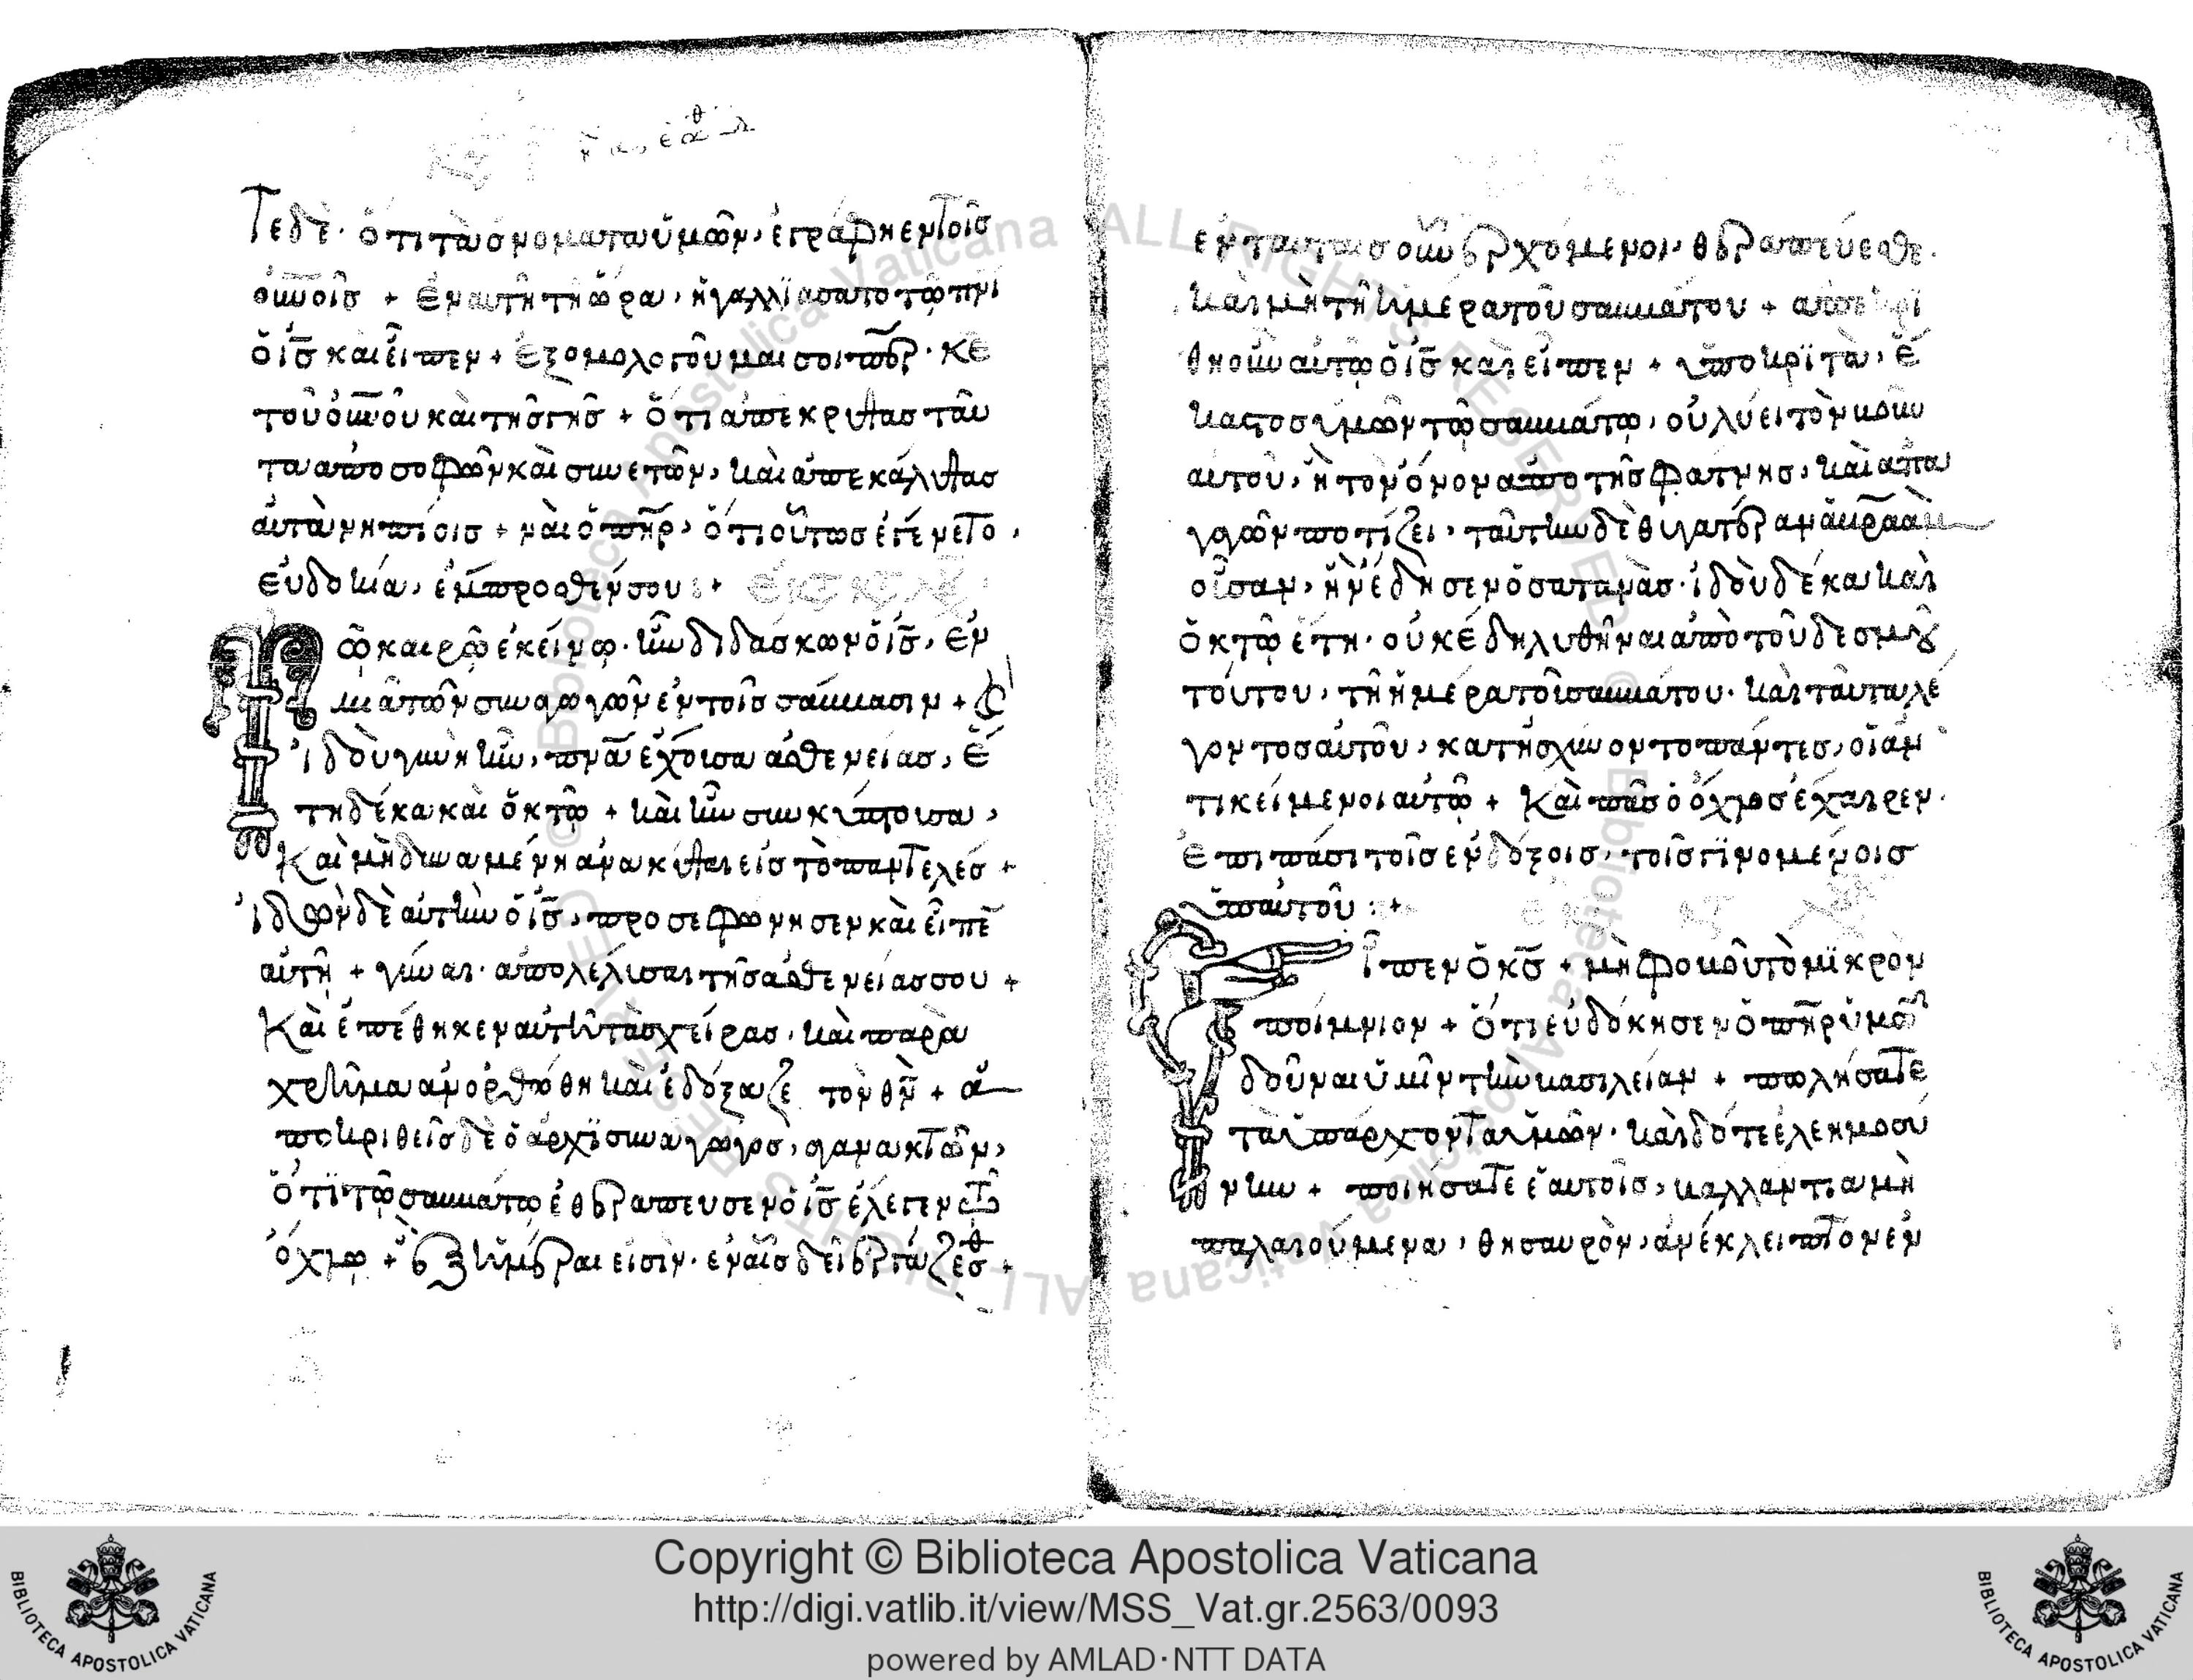 τεδὲ· ὅτι τὰ ὀνόματα ὑμῶν, ἐγράφη ἐν τοῖσ
οὐνοῖσ + Ἐν αὐτῆ τῆ ὥρα, ἠγαλλϊάσατο τῶ πνι
ὁ ἰσ καὶ εἶπεν + Ἐξομολογοῦμαι σοι περ· κε
τοῦ οὐνοῦ καὶ τῆσ γῆσ + Ὅτι ἀπέκρυψασ ταῦ
τα ἀπο σοφῶν καὶ συνετῶν, καὶ ἀπεκάλυψασ
αὐτὰ νηπίοισ + ναὶ ὁ πηρ, ὅτι οὕτωσ ἐγένετο,
εὐδοκία, ἔμπροσθέν σου : +
ῶ καιρῶ ἐκείνω· ἦν διδάσκων ὁ ἰσ, ἐν
μιᾶ τῶν συναγωγῶν ἐν τοῖσ σάββασιν + Καὶ
ἰδοὺ γυνὴ ἦν, πνα ἔχουσα ἀσθενείασ, ἔ
τη δέκα καὶ ὀκτῶ + καὶ ἦν συνκύπτουσα,
Καὶ μὴ δυναμένη ἀνακύψαι εἰσ τὸ παντελέσ +
ἰδὼν δὲ αὐτὴν ὁ ἰσ, προσεφώνησεν καὶ εἶπε
αὐτῆ + γύναι· ἀπολέλυσαι τῆσ ἀσθενείασ σου +
Καὶ ἐπέθηκεν αὐτῆ τὰσ χεῖρασ, καὶ παρα
χρῆμα ἀνορθώθη καὶ ἐδόξαζε τὸν θν + ἀ
ποκριθεὶσ δὲ ὁ ἀρχϊσυναγωγοσ, αγανακτῶν,
ὅτϊ τῶ σαββάτω ἐθεράπευσεν ὁ ἰσ ἔλεγεν τῶ
ὄχλω + ἓξ ἡμέραι εἰσὶν· ἐν αἷσ δεῖ ἐργάζεσθ +
ἐν ταύταισ οὖν ἐρχόμενοι, θεραπεύεσθε·
καὶ μὴ τῆ ἡμέρα τοῦ σαββάτου + ἀπεκρϊ
θη οὖν αὐτῶ ὁ ἰσ καὶ εἶπεν + ὑποκρϊτὰ, ἕ
καστοσ ὑμῶν τῶ σαββάτω, οὐ λύει τὸν βοῦν
αὐτοῦ, ἢ τὸν ὄνον ἀπο τῆσ φάτνησ, καὶ ἀπα
γαγῶν ποτίζει, ταύτην δὲ θυγατέρα ἀβραὰμ
οὖσαν, ἣν ἔδησεν ὁ σατανᾶσ· ἰδοὺ δέκα καὶ
ὀκτῶ ἔτη· οὐκ ἔδη λυθῆναι ἀπὸ τοῦ δεσμοῦ
τούτου, τῆ ἡμέρα τοῦ σαββάτου· καὶ ταῦτα λέ
γοντοσ αὐτοῦ, κατησχύνοντο πάντεσ, οἱ ἀν
τικείμενοι αὐτῶ + Καὶ πᾶσ ὁ ὄχλοσ ἔχαιρεν·
Ἐπι πάσι τοῖσ ἐνδόξοισ, τοῖσ γϊνομένοισ
ὑπ αὐτοῦ : +
ἶπεν ὁ κσ + μὴ φοβοῦ τὸ μϊκρὸν
ποίμνιον + Ὅτι εὐδόκησεν ὁ πηρ ὑμῶν
δοῦναι ὑμῖν τὴν βασιλείαν + πωλήσατε
τὰ ὑπάρχοντα ὑμῶν· καὶ δότε ἐλεημοσύ
νην + ποιήσατε ἑαυτοῖσ, βαλλάντια μὴ
παλαιούμενα, θησαυρὸν, ἀνέκλειπτον ἐν
Copyright © Biblioteca Apostolica Vaticana
http://digi.vatlib.it/view/MSS_Vat.gr.2563/0093
powered by AMLAD·NTT DATA